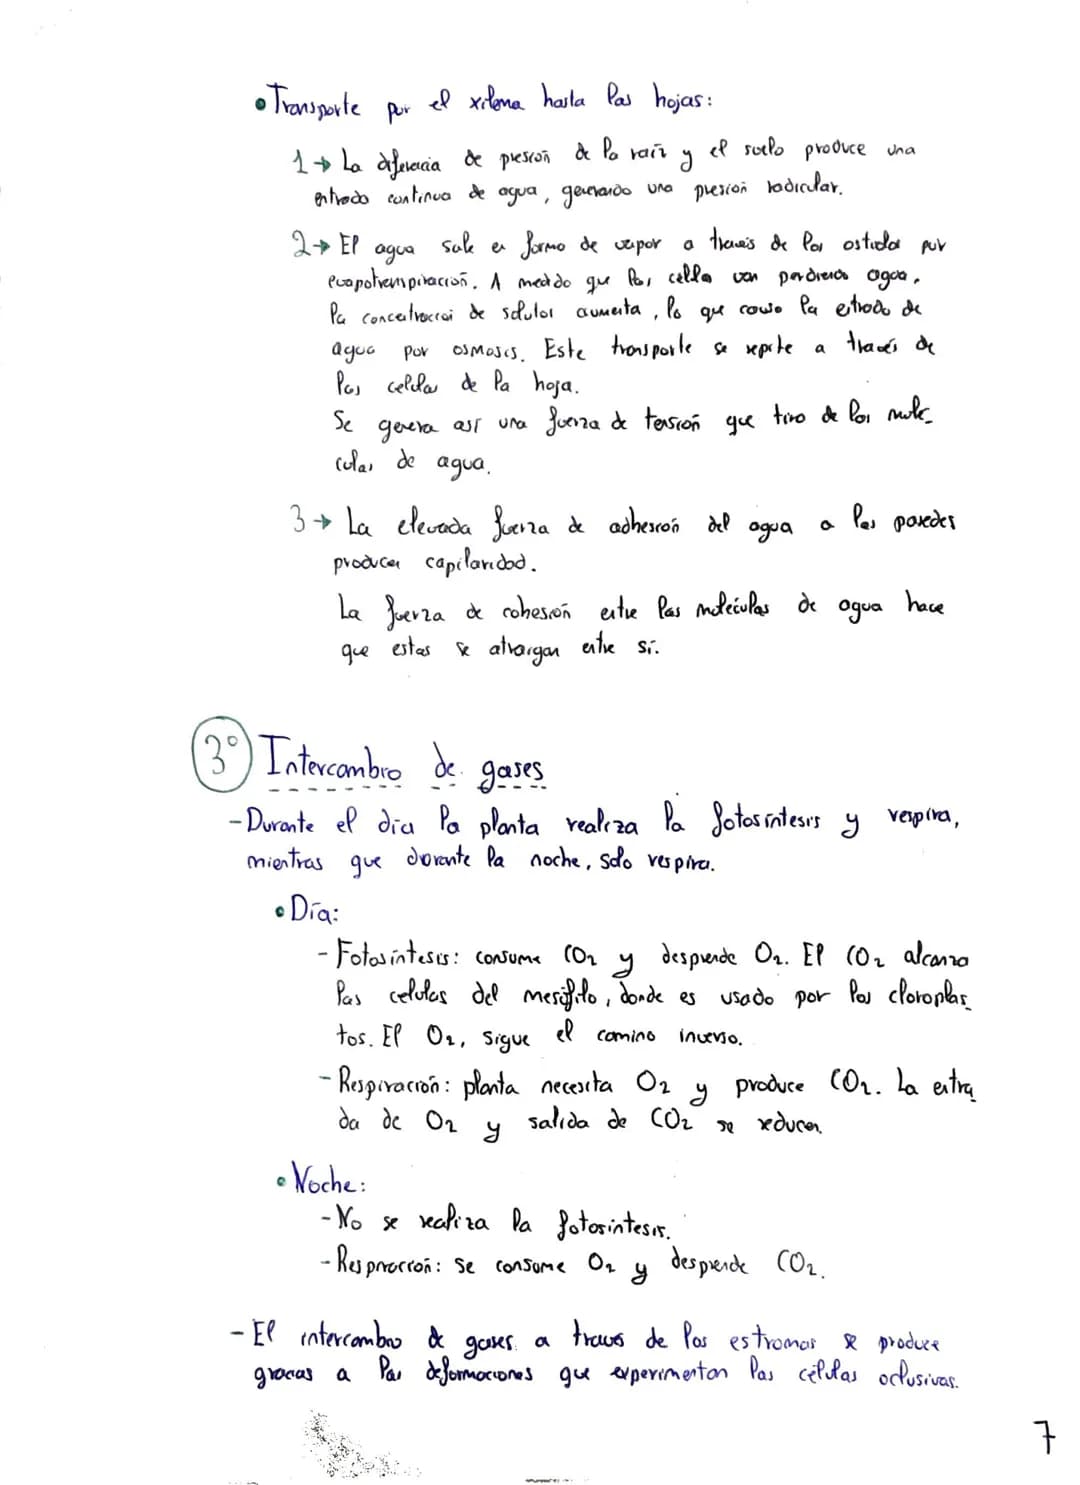 • Transporte por el xilema hasta las hojas:
1→ La diferencia de presión de la raíz y el suelo produce una
entrada continua de agua, generando una presión radicular.
2→ El agua sale en forma de vapor a través de los por
evapotranspiración. A medida que las célla van perdiendo agua,
la concentración de solutos aumenta, lo que causa la entrada de
agua por osmosis. Este transporte se repite a través de
las celdas de la hoja.
Se genera así una fuerza de tensión que tira de las molé_
culas de agua.
3→ La elevada fuerza de adhesión del agua a las paredes
producen capilaridad.
La fuerza de cohesión entre las moléculas de agua hace
que estas se atraigan entre sí.
3º Intercambio de gases
- Durante el día la planta realiza la fotosíntesis y respira,
mientras que durante la noche, solo respira.
• Día:
- Fotosíntesis: consume CO2 y desprende O2. El CO2 alcanza
las celulas del mesófilo, donde es usado por los cloroplas_
tos. El O2, sigue el camino inverso.
- Respiración: planta necesita O2 y produce CO2. La entra_
da de O2 y salida de CO2 se reducen.
• Noche:
- No se realiza la fotosíntesis.
- Respiración: Se consume O2 y desprende CO2.
- El intercambio de gases a través de los estromas se produce
gracias a las deformaciones que experimentan las células oclusivas.
7